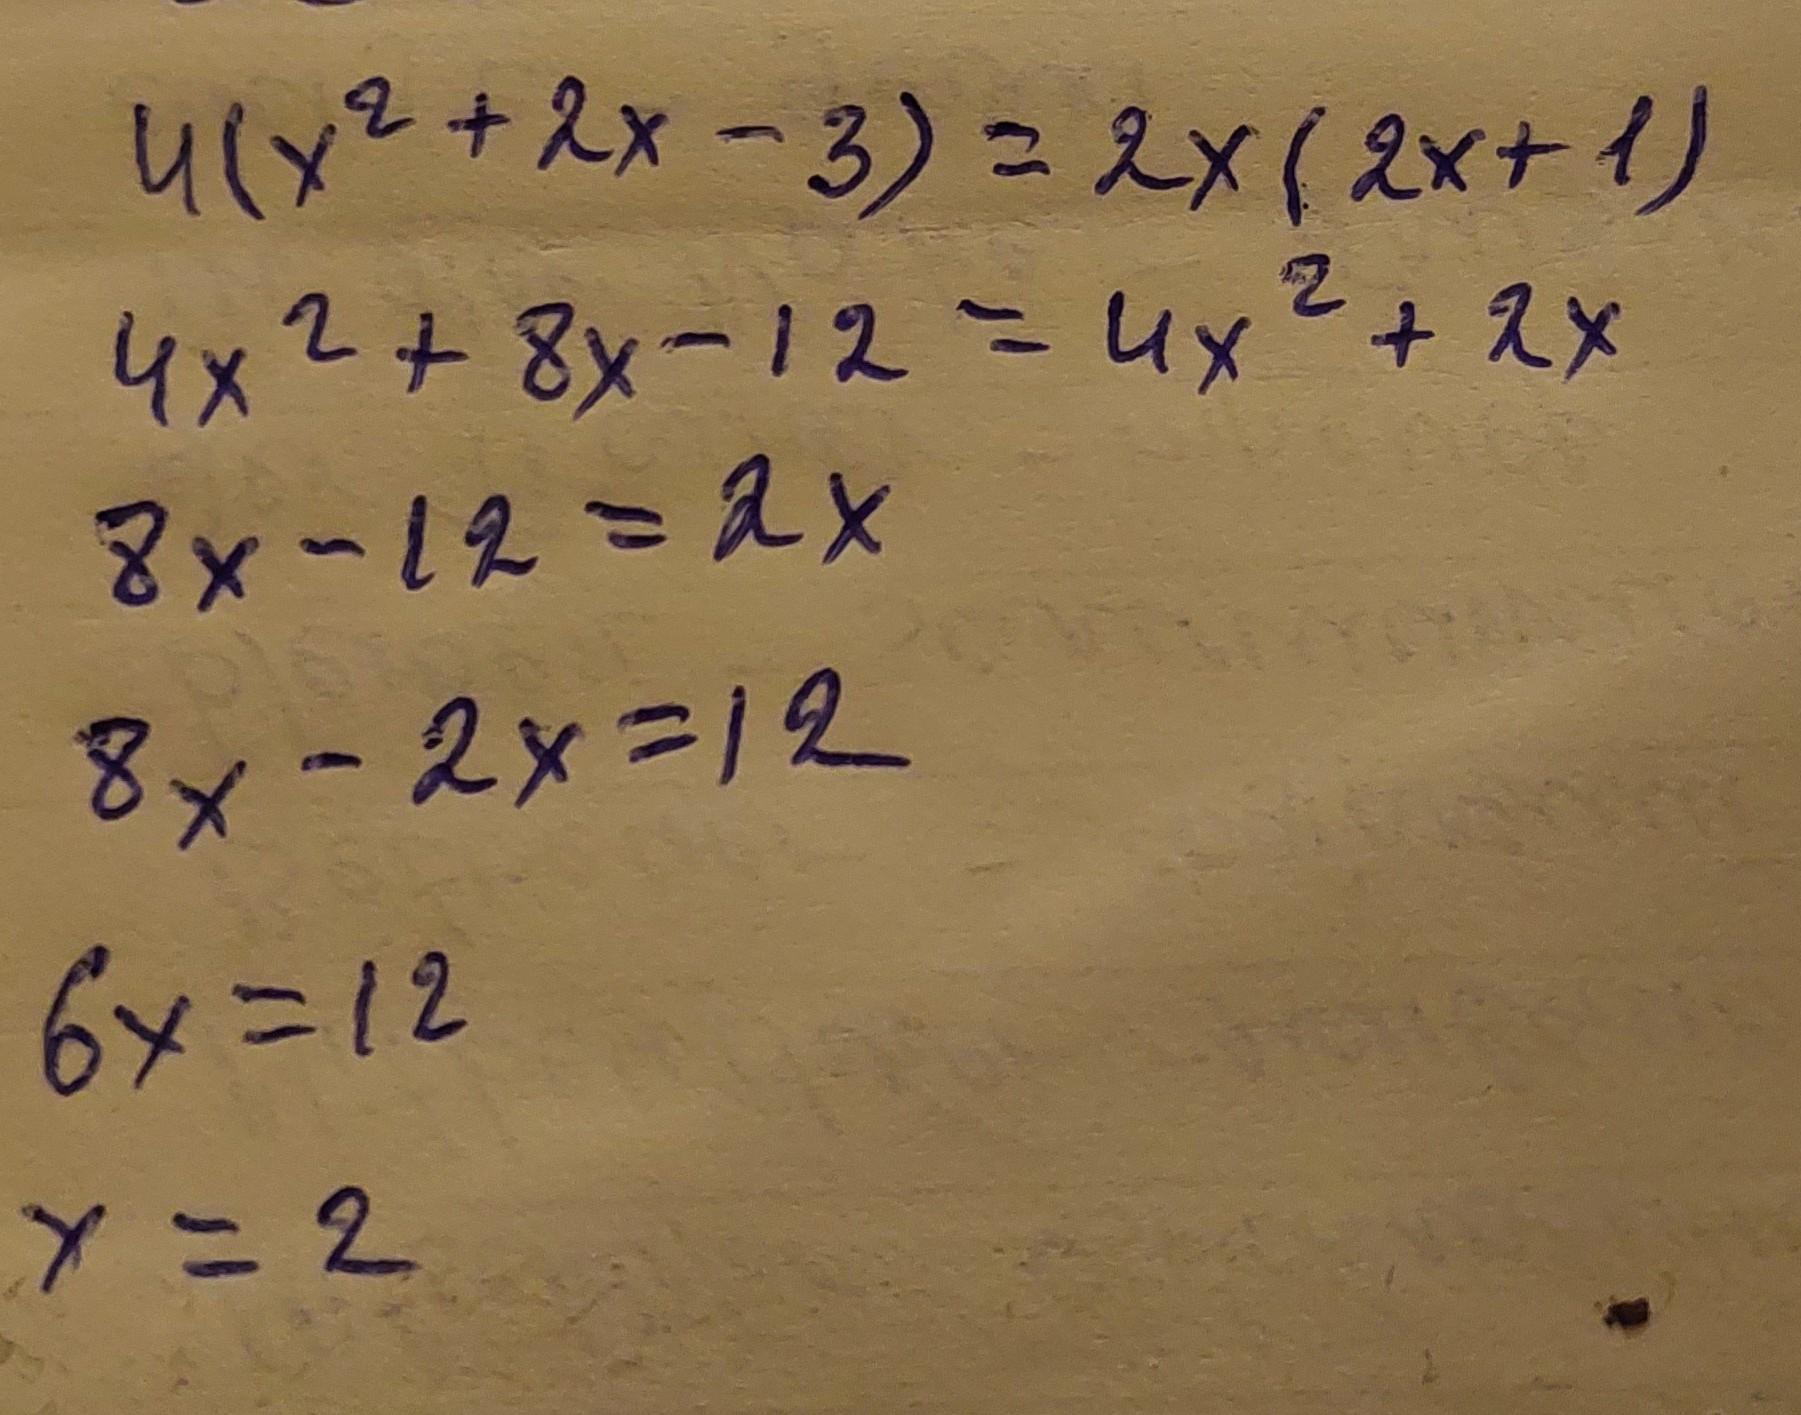 4(x² + 2x - 3) = 2x(2x + 1)
4x² + 8x - 12 = 4x² + 2x
8x - 12 = 2x
8x - 2x = 12
6x = 12
x = 2